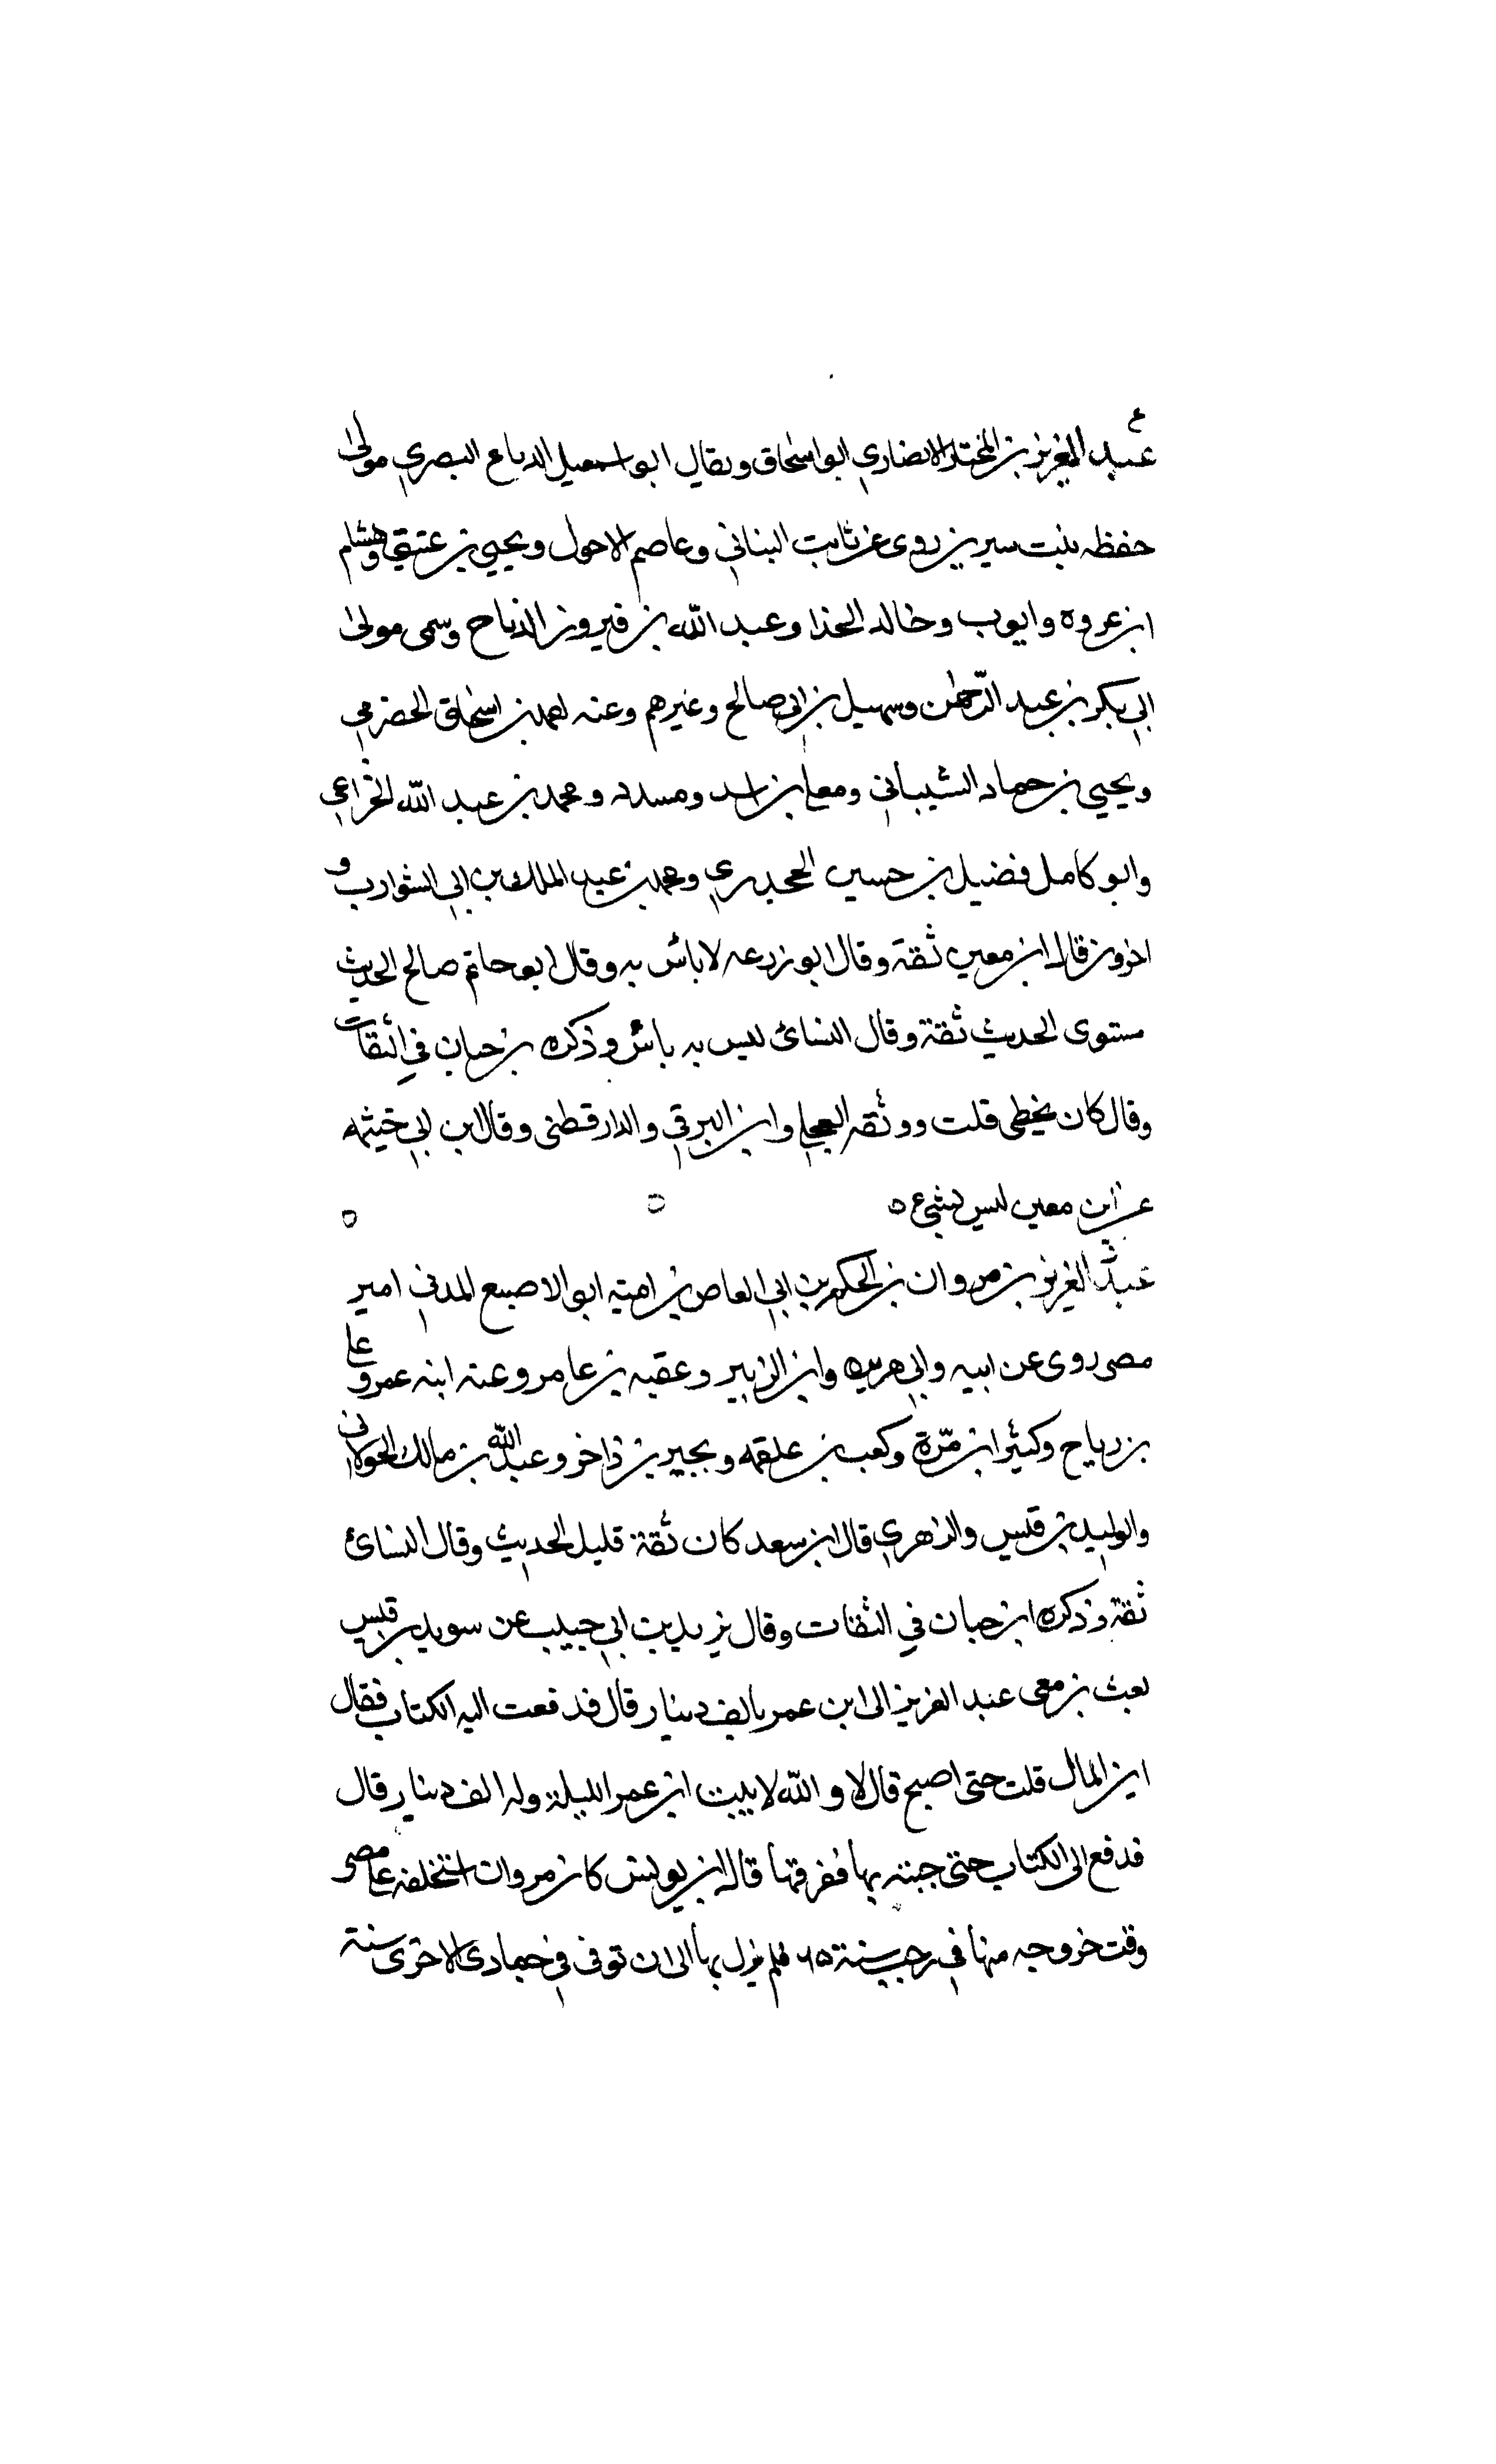 ع
عبد العزيز بن المختار الانصاري ابو اسحاق ويقال ابو اسمعيل الدباغ البصري مولى
حفظه بنت سيرين روى عن ثابت البناني وعاصم الاحول ويحيى بن عتيق وهشام
ابن عروه وايوب وخالد الحذا وعبد الله بن فيروز الدناح وسمى مولى
ابي بكر بن عبد الرحمن وسهيل بن ابي صالح وغيرهم وعنه احمد بن اسحاق الحضرمي
ويحيى بن حماد الشيباني ومعلى بن اسد ومسدد ومحمد بن عبد الله الخزاعي
وابو كامل فضيل ابن حسين الجحدري ومحمد بن عبد الملك بن ابي الشوارب و
اخرون قال ابن معين ثقة وقال ابو زرعه لا باس به وقال ابو حاتم صالح الحديث
مستوى الحديث ثقة وقال النسائ ليس به باس وذكره بن حبان في الثقات
وقال كان يخطى قلت ووثقه العجلي وابن البرقي والدارقطنى وقال ابن ابي خيثمه
عن ابن معين ليس بشيء ٥
عبد العزيز بن مروان بن الحكم بن ابي العاص بن امية ابو الاصبع المدني امير
مصر روى عن ابيه وابي هريره وابن الزبير وعقبه بن عامر وعنه ابنه عمر وعلي
بن رباح وكثير ابن مرّة وكعب بن علقمه وبجير بن ذاخر وعبد الله بن مالك الخولاني
والوليد بن قيس والزهري قال ابن سعد كان ثقة قليل الحديث وقال النسائ
ثقة وذكره ابن حبان في الثقات وقال يزيد بن ابي حبيب عن سويد بن قيس
بعث بن معى عبد العزيز الى ابن عمر بالف دينار قال فدفعت اليه الكتاب فقال
اين المال قلت حتى اصبح قال لا والله لا يبيت ابن عمر الليلة وله الف دينار قال
فدفع الى الكتاب حتى جيته بها ففرقها قال ابن يونس كان مروان استخلفه على مصر
وقت خروجه منها في رجب سنة ٦٥ فلم يزل بها الى ان توفى في جمادى الاخرى سنة